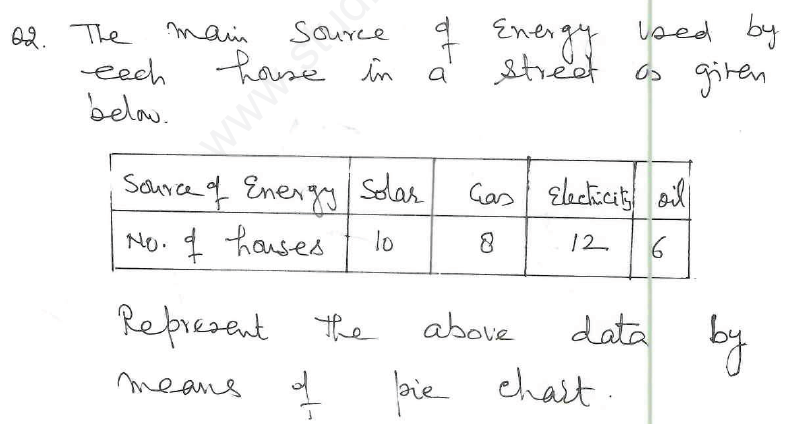 Q2. The main Source of Energy used by
each house in a street is given
below.
Source of Energy Solar Gas Electricity oil
No. of houses 10 8 12 6
Represent the above data by
means of pie chart.